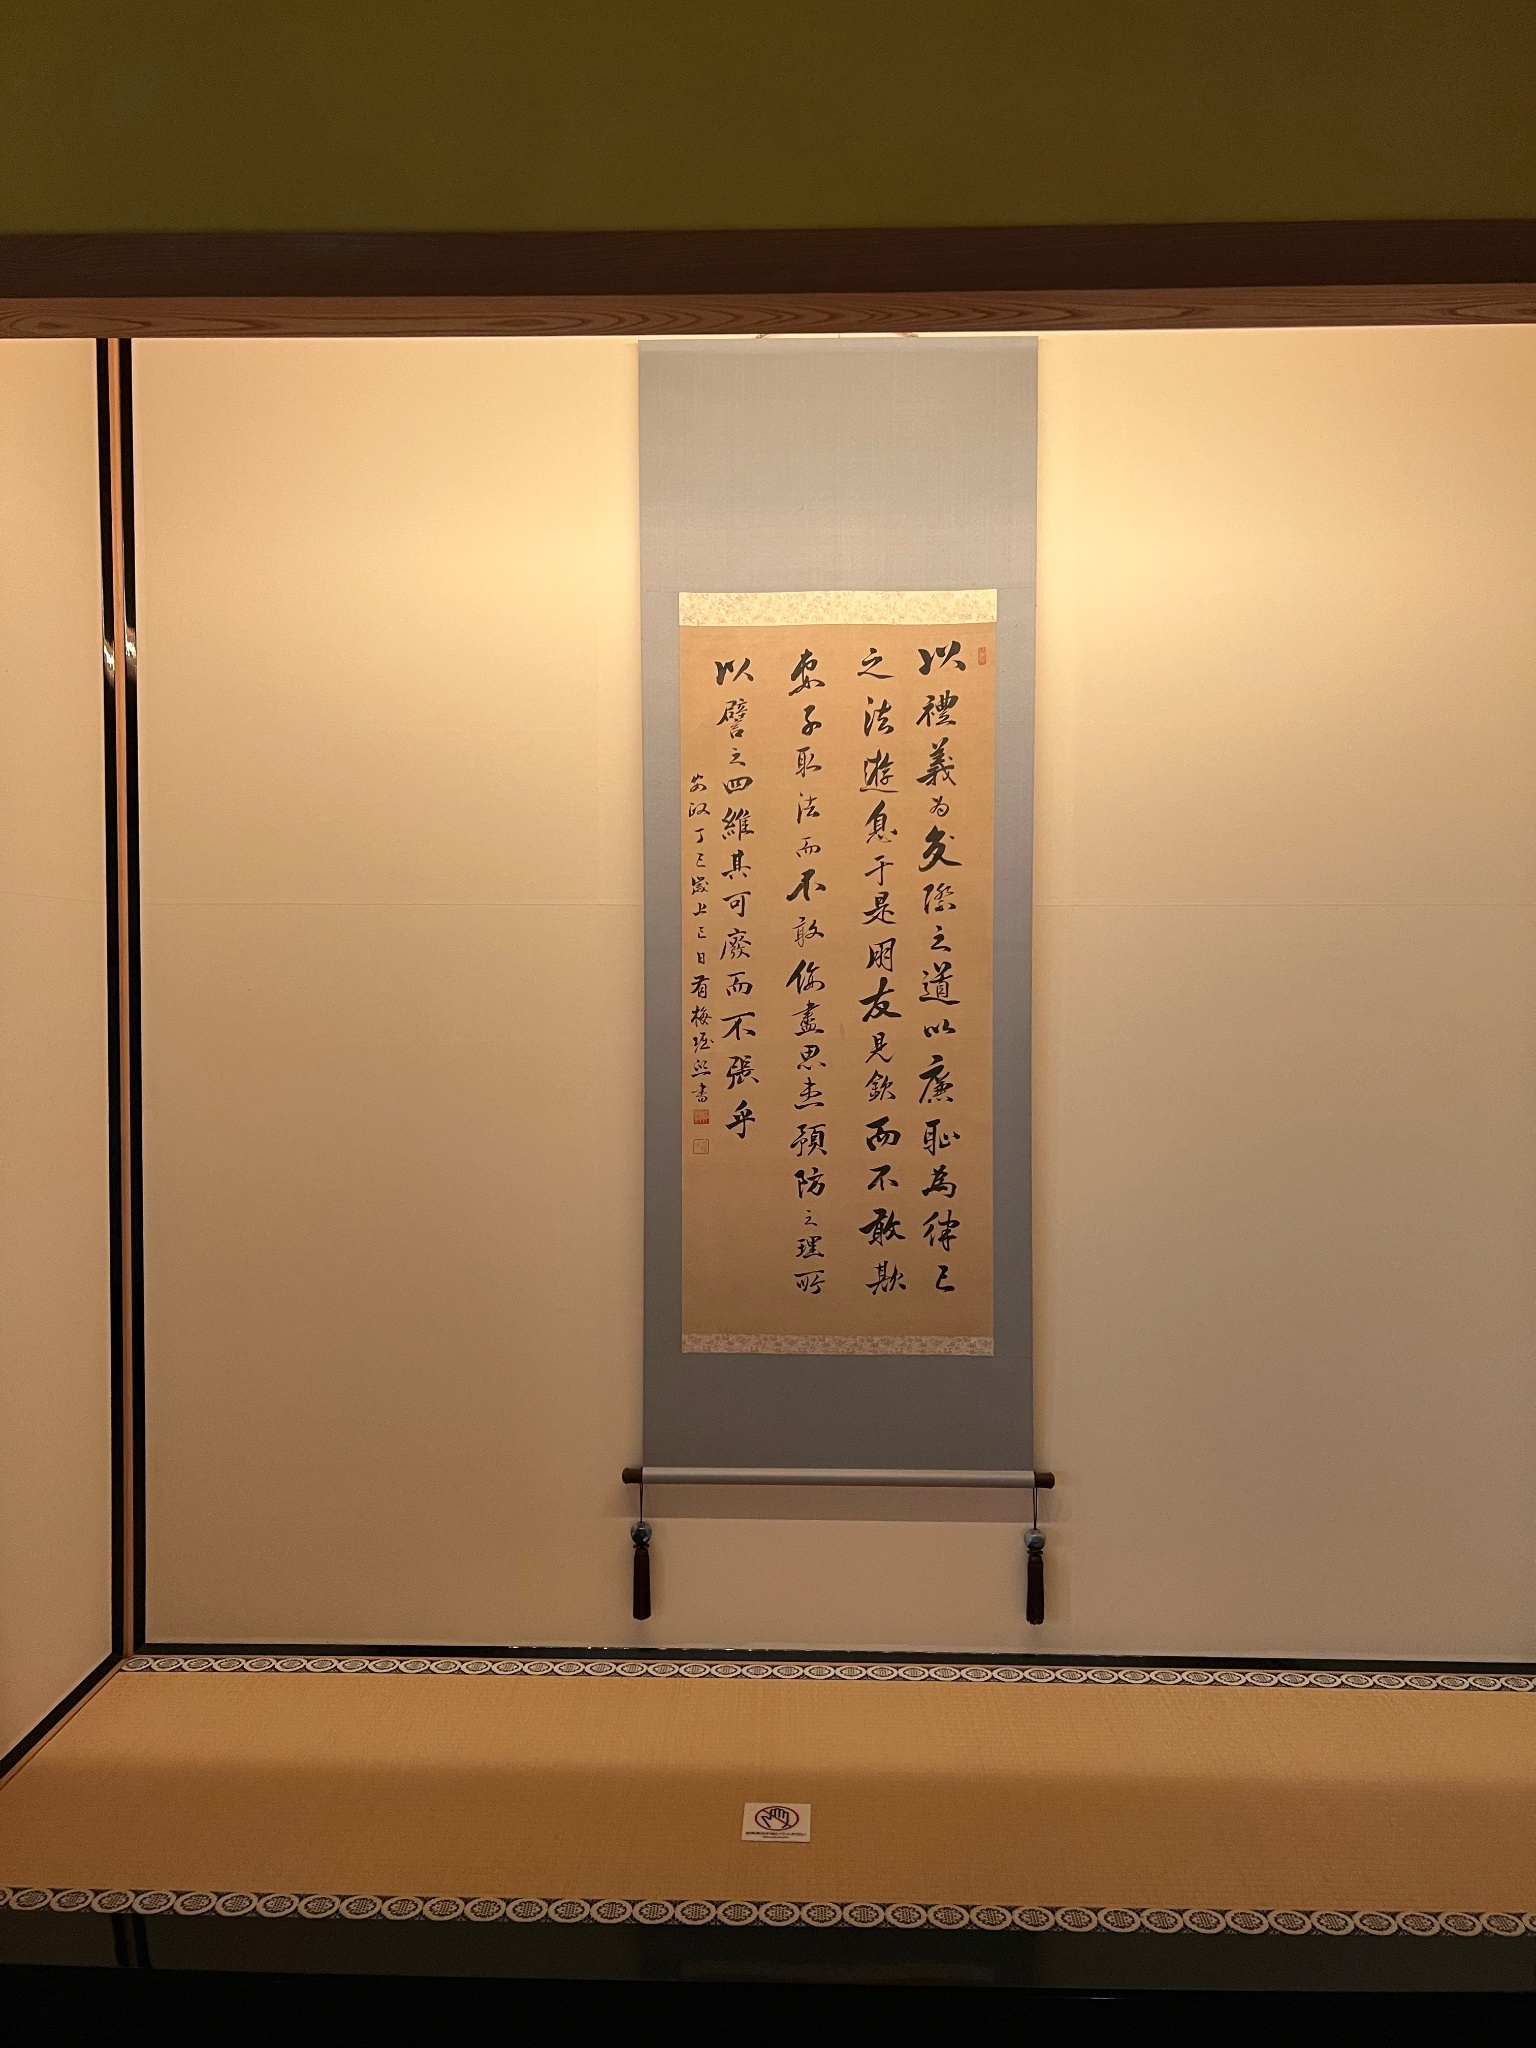 以禮義為交際之道以廉恥為律己
之法遊息于是朋友見欽而不敢欺
妻子取法而不敢侮盡思患預防之理所
以譬之四維其可廢而不張乎
安政丁巳歲上巳日有梅 熙書